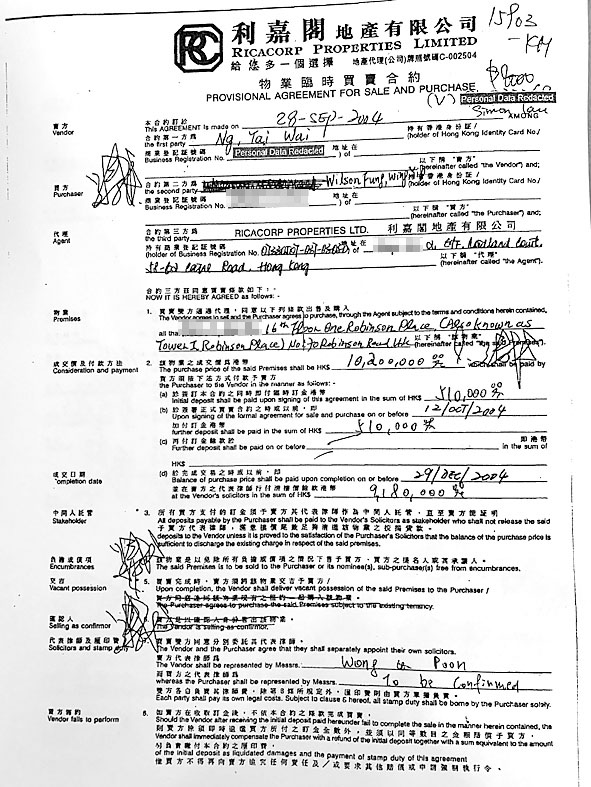 利嘉閣地產有限公司
RICACORP PROPERTIES LIMITED
給您多一個選擇 地產代理(公司)牌照號碼C-002504
15903
物業臨時買賣合約
PROVISIONAL AGREEMENT FOR SALE AND PURCHASE
(V) Personal Data Redacted
AMONG
賣方
Vendor
本合約訂於
This AGREEMENT is made on 28-SEP-2004
合約第一方為 持有香港身份証/
the first party Ng, Tai Wai (holder of Hong Kong Identity Card No./
商業登記証號碼 地址在
Business Registration No. Personal Data Redacted ) of
以下稱 "賣方"
(hereinafter called "the Vendor") and;
買方
Purchaser
合約第二方為 香港身份証/
the second party Wilson Fung, Wing (holder of Hong Kong Identity Card No./
商業登記証號碼 地址在
Business Registration No. ) of
以下稱 "買方"
(hereinafter called "the Purchaser") and;
代理
Agent
合約第三方為 利嘉閣地產有限公司
the third party RICACORP PROPERTIES LTD.
持有商業登記証號碼 地址在
(holder of Business Registration No. ) of
Road, Hong Kong
以下稱 "代理"
(hereinafter called "the Agent").
合約三方茲同意買賣條款如下:-
NOW IT IS HEREBY AGREED as follows:-
物業
Premises
1. 買賣雙方通過代理,同意以下列條款出售及購入
The Vendor agrees to sell and the Purchaser agrees to purchase, through the Agent subject to the terms and conditions herein contained,
all that 16th Floor One Robinson Place, (Also known as
Tower I, Robinson Place) No. 70 Robinson Road
(hereinafter called "the said Premises").
成交價及付款方法
Consideration and payment
2. 該物業之成交價為港幣
The purchase price of the said Premises shall be HK$ 10,200,000 which shall be paid by
買方須按下述方式付款予賣方
the Purchaser to the Vendor in the manner as follows:-
(a) 於簽訂本合約之同時即付臨時訂金港幣
Initial deposit shall be paid upon signing of this agreement in the sum of HK$ 510,000
(b) 於簽署正式買賣合約之時或以前,即
Upon signing of the formal agreement for sale and purchase on or before 12/OCT/2004
加付訂金港幣
further deposit shall be paid in the sum of HK$ 510,000
(c) 再付訂金餘款於 即港幣
Further deposit shall be paid on or before in the sum of
HK$
成交日期
Completion date
(d) 於完成交易之時或以前,即
Balance of purchase price shall be paid upon completion on or before 29/DEC/2004
並在賣方之代表律師行付清樓價餘款港幣
at the Vendor's solicitors in the sum of HK$ 9,180,000
中間人託管
Stakeholder
3. 所有買方支付的訂金須予賣方其代表律師作為中間人託管,直至賣方能証明
All deposits payable by the Purchaser shall be paid to the Vendor's Solicitors as stakeholder who shall not release the said
deposits to the Vendor unless it is proved to the satisfaction of the Purchaser's Solicitors that the balance of the purchase price is
sufficient to discharge the existing charge in respect of the said premises.
負擔或債項
Encumbrances
該物業是以免除所有負擔或債項之情況下售予買方、買方之提名人或其承讓人。
The said Premises is to be sold to the Purchaser or its nominee(s), sub-purchaser(s) free from encumbrances.
交吉
Vacant possession
5. 買賣完成時,賣方須將該物業交吉予買方/
Upon completion, the Vendor shall deliver vacant possession of the said Premises to the Purchaser /
The Purchaser agrees to purchase the said Premises subject to the existing tenancy.
確認人
Selling as confirmor
The Vendor is selling as confirmor.
代表律師及釐印費
Solicitors and stamp duty
買賣雙方同意分別委託其代表律師。
The Vendor and the Purchaser agree that they shall separately appoint their own solicitors.
賣方代表律師為
The Vendor shall be represented by Messrs. Wong & Poon
而買方之代表律師為
whereas the Purchaser shall be represented by Messrs. To be Confirmed
雙方各自負責其律師費,除第8條所規定外,釐印費則由買方單獨負責。
Each party shall pay its own legal costs. Subject to clause 8 hereof, all stamp duty shall be borne by the Purchaser solely.
賣方毀約
Vendor fails to perform
8. 如賣方在收取訂金後,不依本合約之條款完成買賣,
Should the Vendor after receiving the initial deposit paid hereunder fail to complete the sale in the manner herein contained, the
則賣方除須即時退還買方所付之訂金全數外,並須以同等數目之金額賠償予買方,
Vendor shall immediately compensate the Purchaser with a refund of the initial deposit together with a sum equivalent to the amount
另負責繳付本合約之釐印費,
of the initial deposit as liquidated damages and the payment of stamp duty of this agreement
惟買方不得再向賣方追究任何責任及/或要求其他賠償或申請強制執行令。